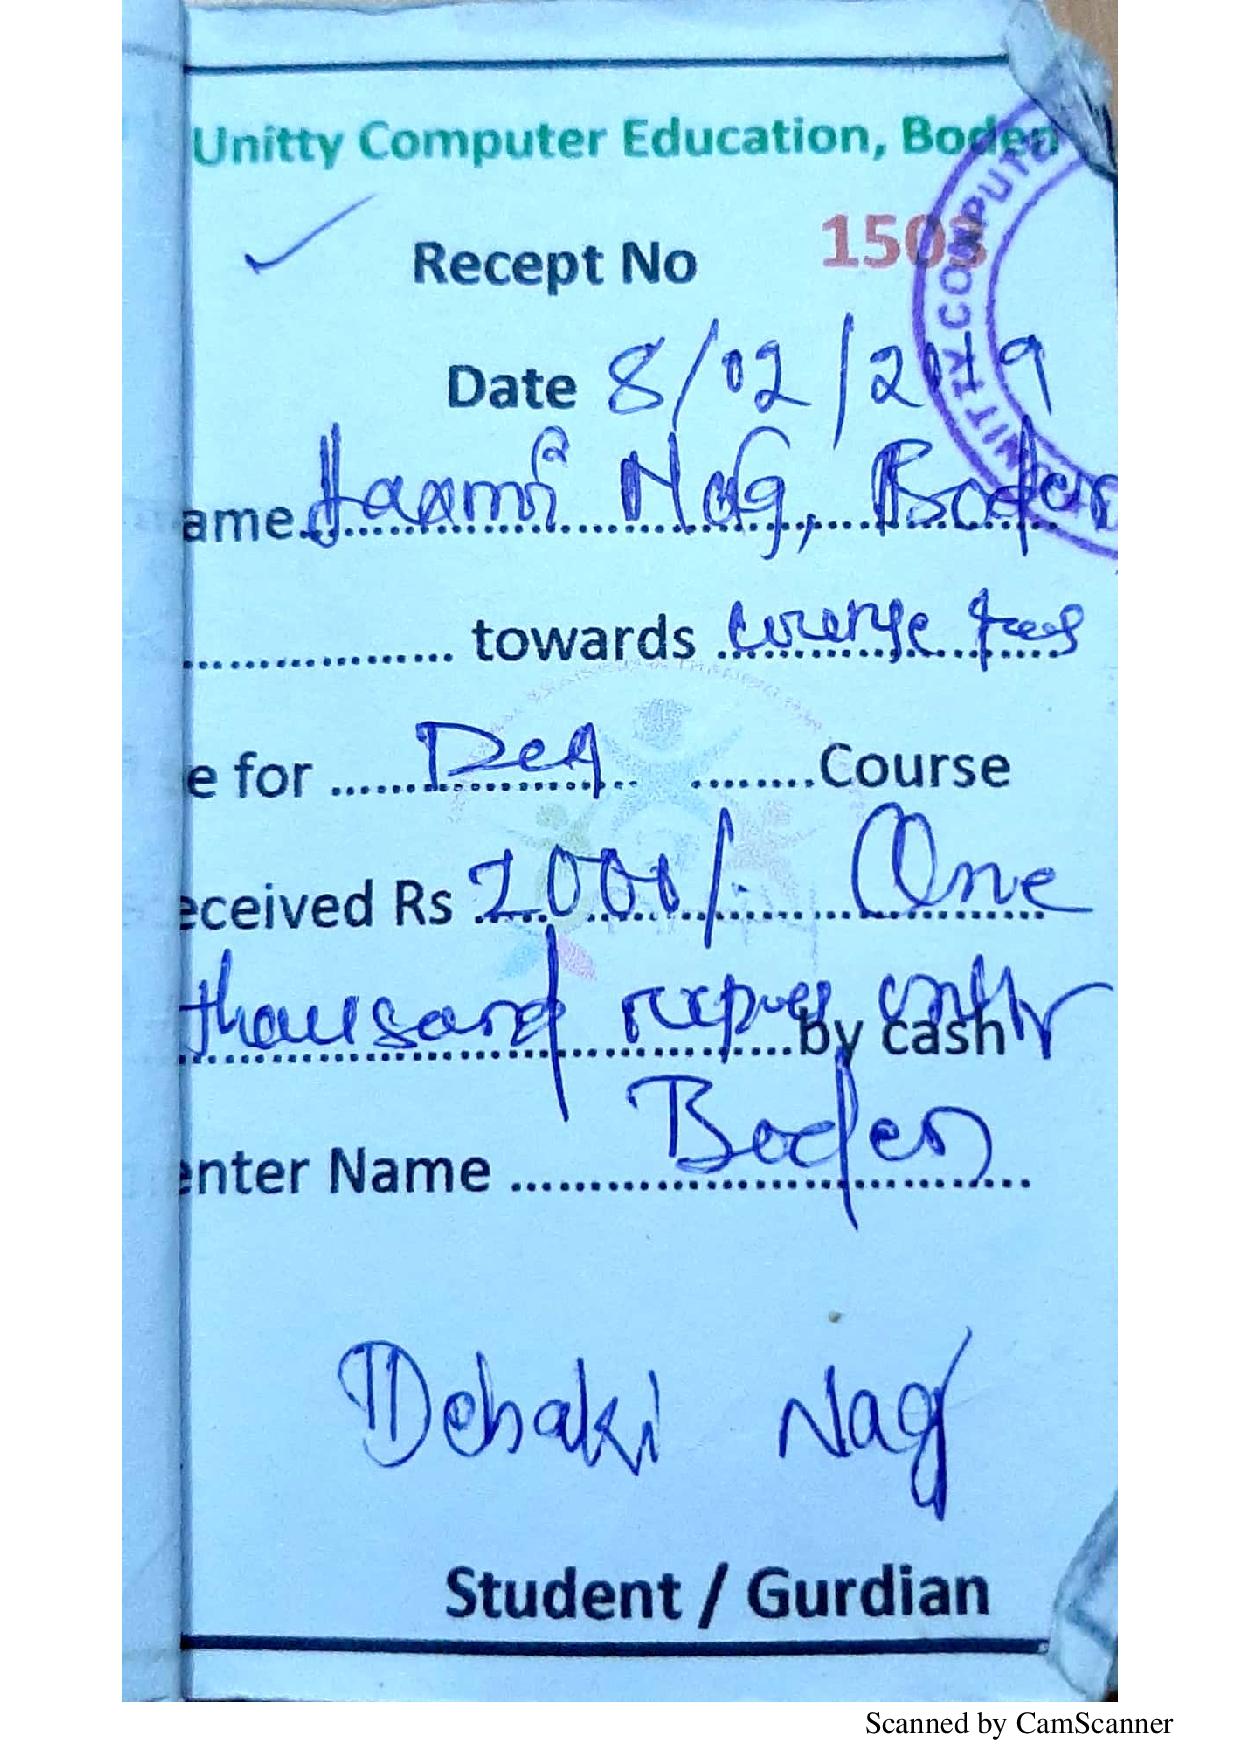 Unitty Computer Education, Boden
Recept No 1503
Date 8/02/2019
ame Laxmi Nag, Boden
towards course fees
e for Deg Course
eceived Rs 2000/- One
thousand rupees only
by cash
enter Name Boden
Debaki Nag
Student / Gurdian
Scanned by CamScanner